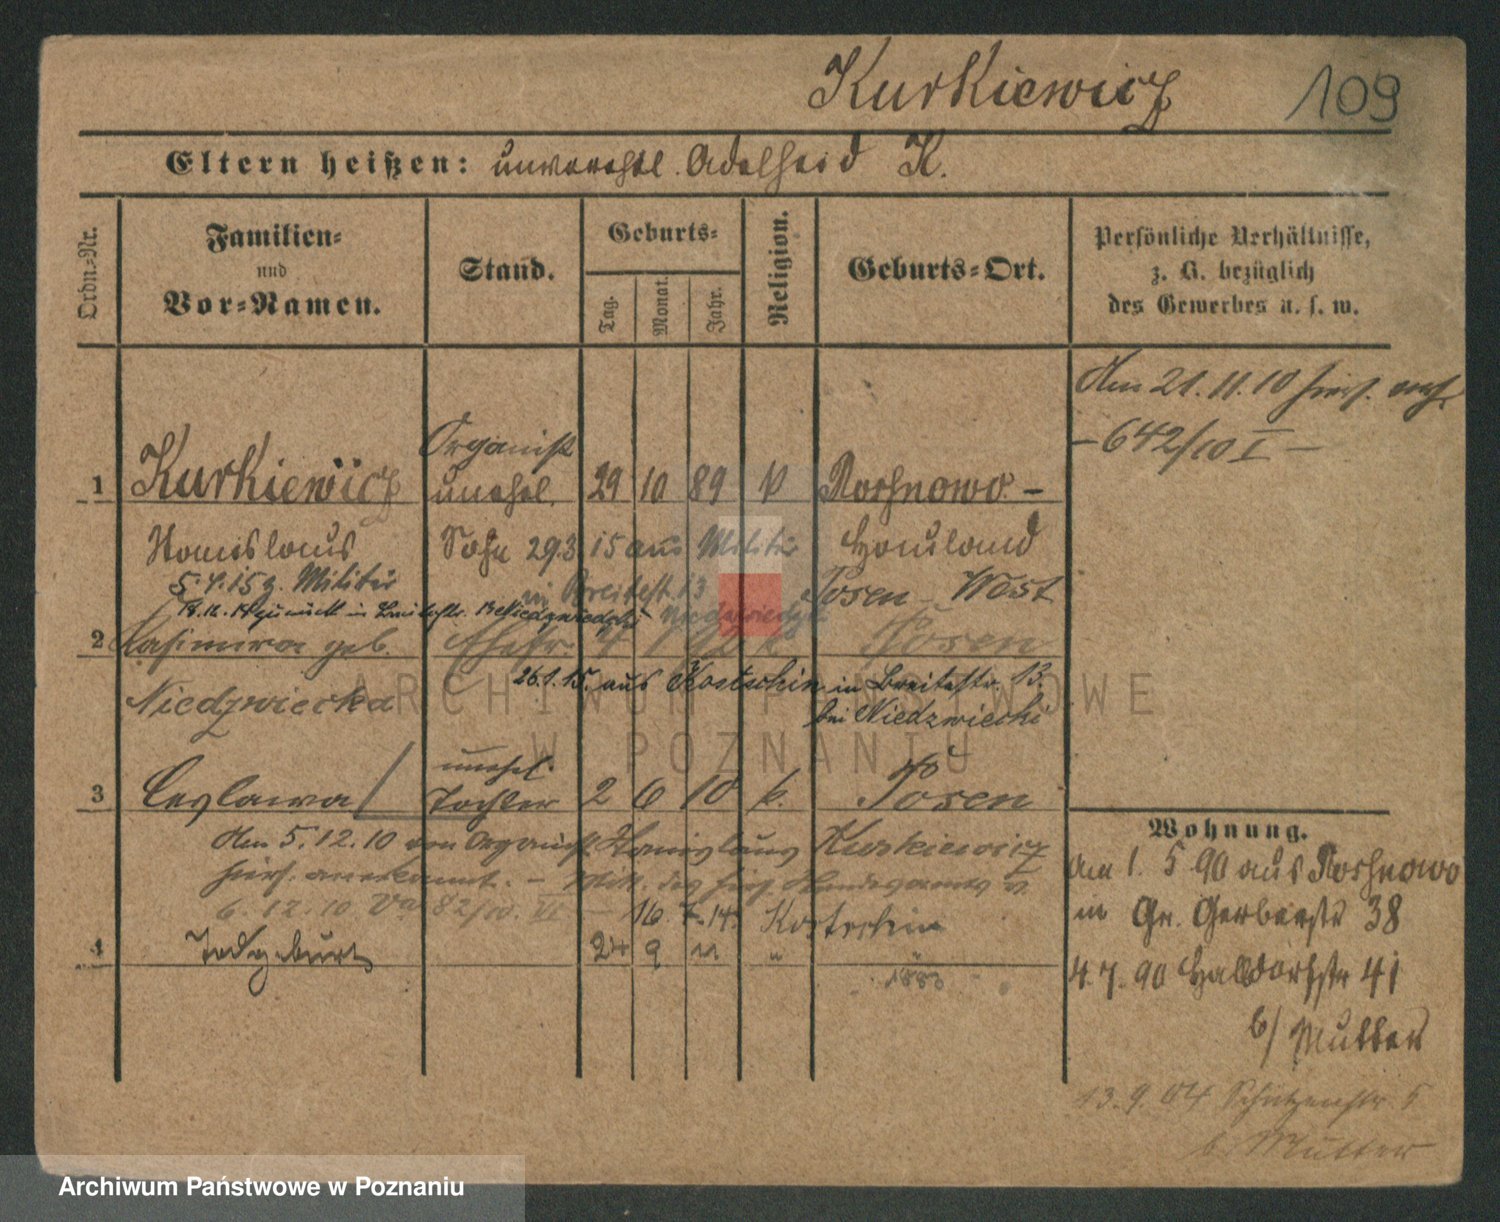 Kurkiewicz 109
Eltern heißen: unverehel. Adelheid K.
Ordn.-Nr.
Familien-
und
Vor-Namen.
Stand.
Geburts-
Tag.
Monat.
Jahr.
Religion.
Geburts-Ort.
Persönliche Verhältnisse,
z. B. bezüglich
des Gewerbes u. s. w.
Am 21.11.10
-642/10 I-
Organist
1 Kurkiewicz unehel. 29 10 89 k Roshnowo-
Stanislaus Sohn 29.3.15 aus Militär Hauland
5.4.15 z. Militär in Breitestr. 13 Posen-West
zurück in Breitestr. 13 Niedzwiedzki
2 Kasimira geb. Ehefr. 4 Posen
Niedzwiecka 26.1.15. aus Kostschin in Breitestr. 13.
bei Niedzwiecki
unehel.
3 Ceslawa Tochter 2 6 10 k. Posen
Am 5.12.10 von Organist Stanislaus Kurkiewicz
hies. anerkannt. - Mitt. des hies. Standesamts v.
6.12.10 82/10. VI - 16. 7. 14. Kostschin
4 Todgeburt 24 9 " " "
1883
Wohnung.
Am 1. 5. 90 aus Roshnowo
in Gr. Gerberstr 38
4.7.90 Halbdorfstr 41
b/ Mutter
13.9.04 Schützenstr. 5
b. Mutter
ARCHIWUM PAŃSTWOWE
W POZNANIU
Archiwum Państwowe w Poznaniu